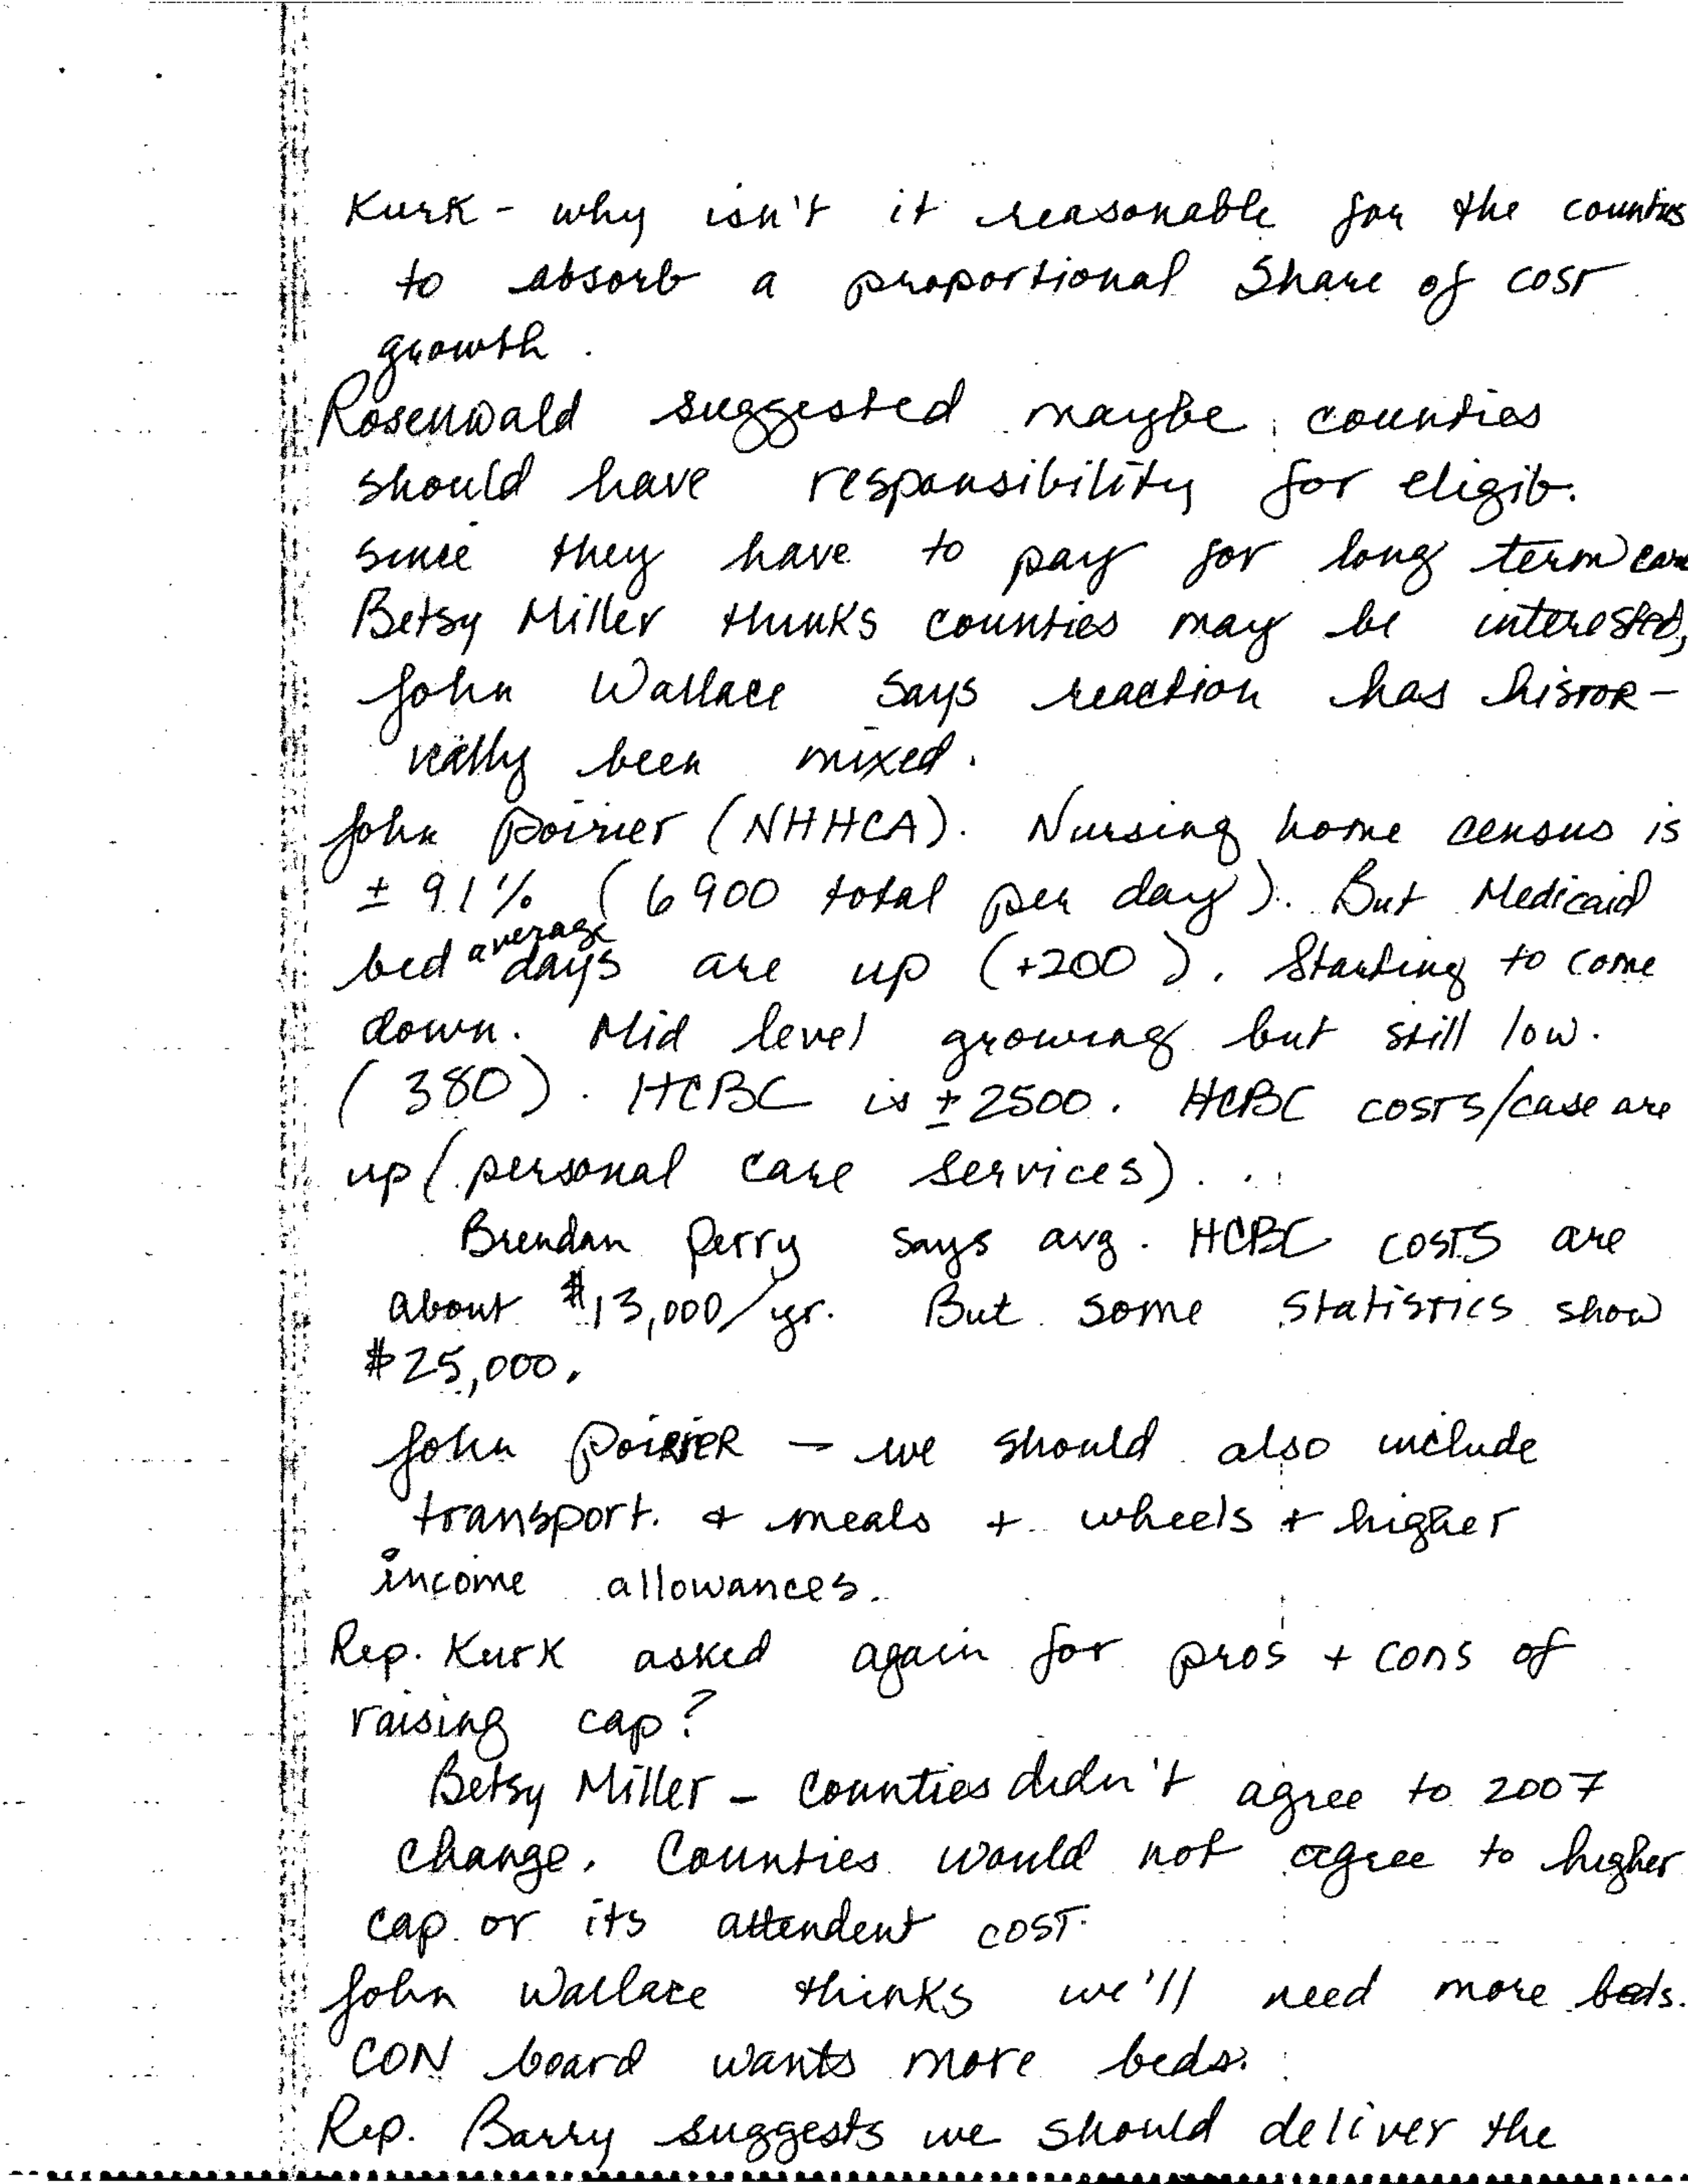 Kurk - why isn't it reasonable for the counties
to absorb a proportional share of cost
growth.
Rosenwald suggested maybe counties
should have responsibility for eligib.
since they have to pay for long term care
Betsy Miller thinks counties may be interested,
John Wallace says reaction has histor-
ically been mixed.
John Poirier (NHHCA). Nursing home census is
± 91% (6900 total per day). But Medicaid
average
bed days are up (+200). Starting to come
down. Mid level growing but still low.
(380). HCBC is ±2500. HCBC costs/case are
up (personal care services).
Brendan Perry says avg. HCBC costs are
about $13,000/yr. But some statistics show
$25,000.
John Poirier — we should also include
transport. + meals + wheels + higher
income allowances.
Rep. Kurk asked again for pros + cons of
raising cap?
Betsy Miller - Counties didn't agree to 2007
change. Counties would not agree to higher
cap or its attendent cost.
John Wallace thinks we'll need more beds.
CON board wants more beds.
Rep. Barry suggests we should deliver the